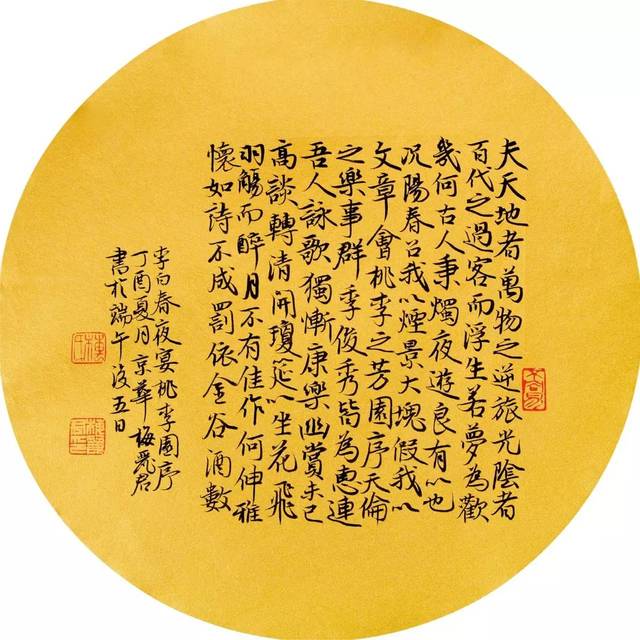 夫天地者萬物之逆旅光陰者
百代之過客而浮生若夢為歡
幾何古人秉燭夜遊良有以也
况陽春召我以煙景大塊假我以
文章會桃李之芳園序天倫
之樂事群季俊秀皆為惠連
吾人詠歌獨慚康樂幽賞未已
高談轉清開瓊延以坐花飛
羽觴而醉月不有佳作何伸雅
懷如詩不成罰依金谷酒數
李白春夜宴桃李園序
丁酉夏月京華梅君
書於端午後五日